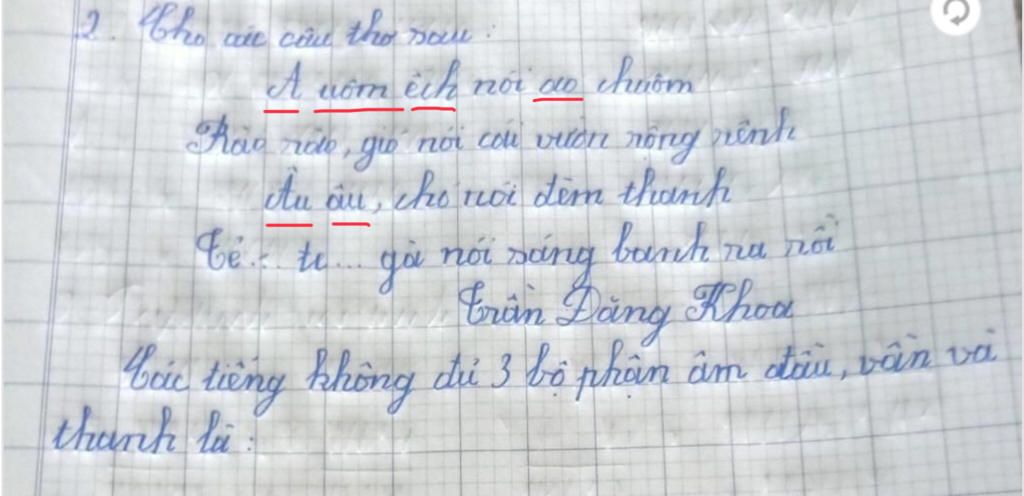 2. Cho các câu thơ sau:
A uôm ếch nói ao chuôm
Rào rào, gió nói cái vườn rộng rênh
Âu âu, chó nói đêm thanh
Tẻ... te... gà nói sáng banh ra rồi
Trần Đăng Khoa
Các tiếng không đủ 3 bộ phận âm đầu, vần và
thanh là: